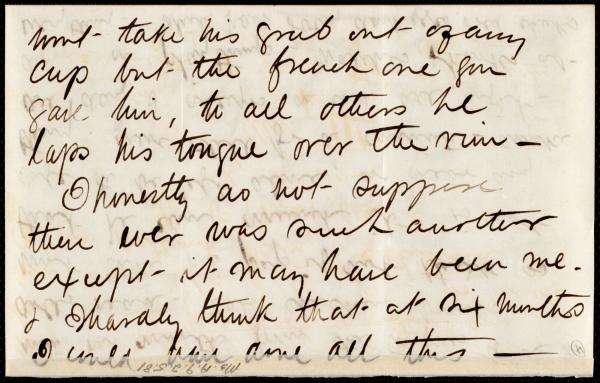 wont take his grub out of any
cup but the french one you
gave him, to all others he
laps his tongue over the rim —
I honestly do not suppose
there ever was such another
except it may have been me.
& I hardly think that at six months
I could have done all this —
Ms. A.9.2